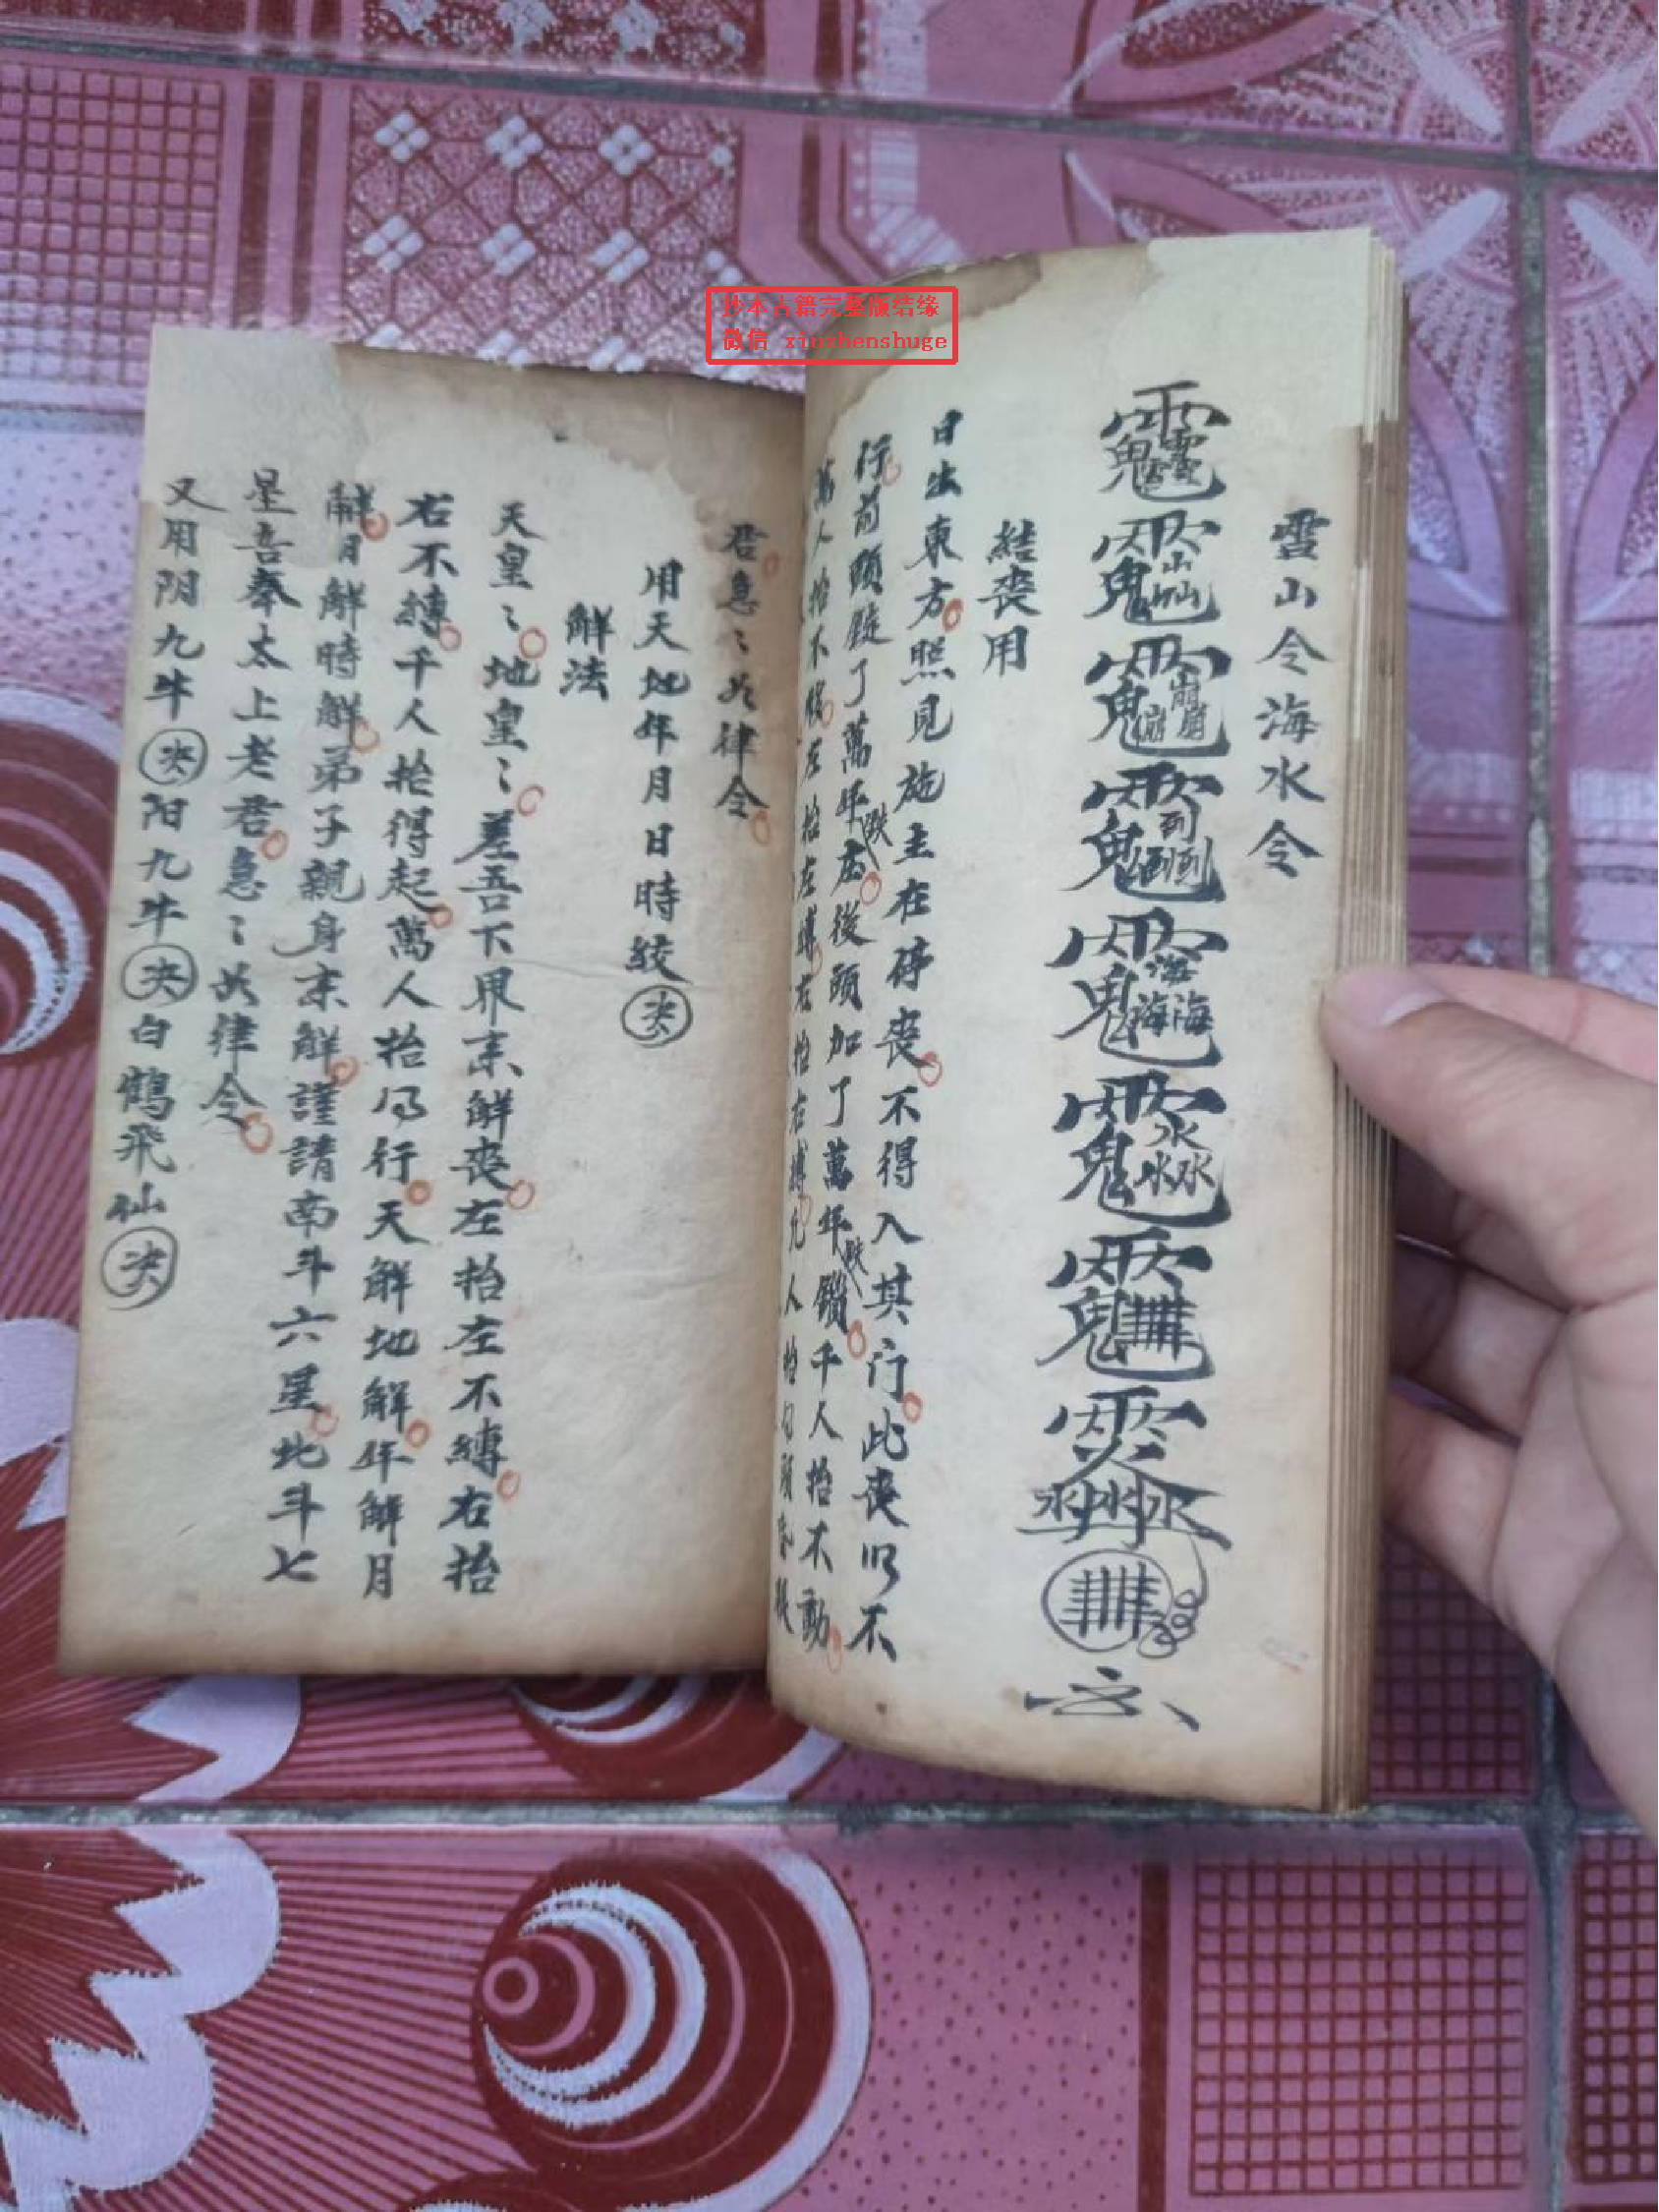 抄本古籍完整版结缘
微信 xiuzhenshuge
雪山令海水令
結丧用
日出東方照見施主在停丧不得入其门此丧以不
行前頭碇了萬年庄後頭加了萬年鐵鎖千人抬不動
萬人抬不移左抬左縛右抬右縛九人抬
君急〻如律令
用天地年月日時絞
解法
天皇〻地皇〻差吾下界来解丧左抬左不縛右抬
右不縛千人抬得起萬人抬得行天解地解年解月
解日解時解弟子親身来解謹請南斗六星北斗七
星吾奉太上老君急〻如律令
又用阴九牛决阳九牛决白鶴飛仙决